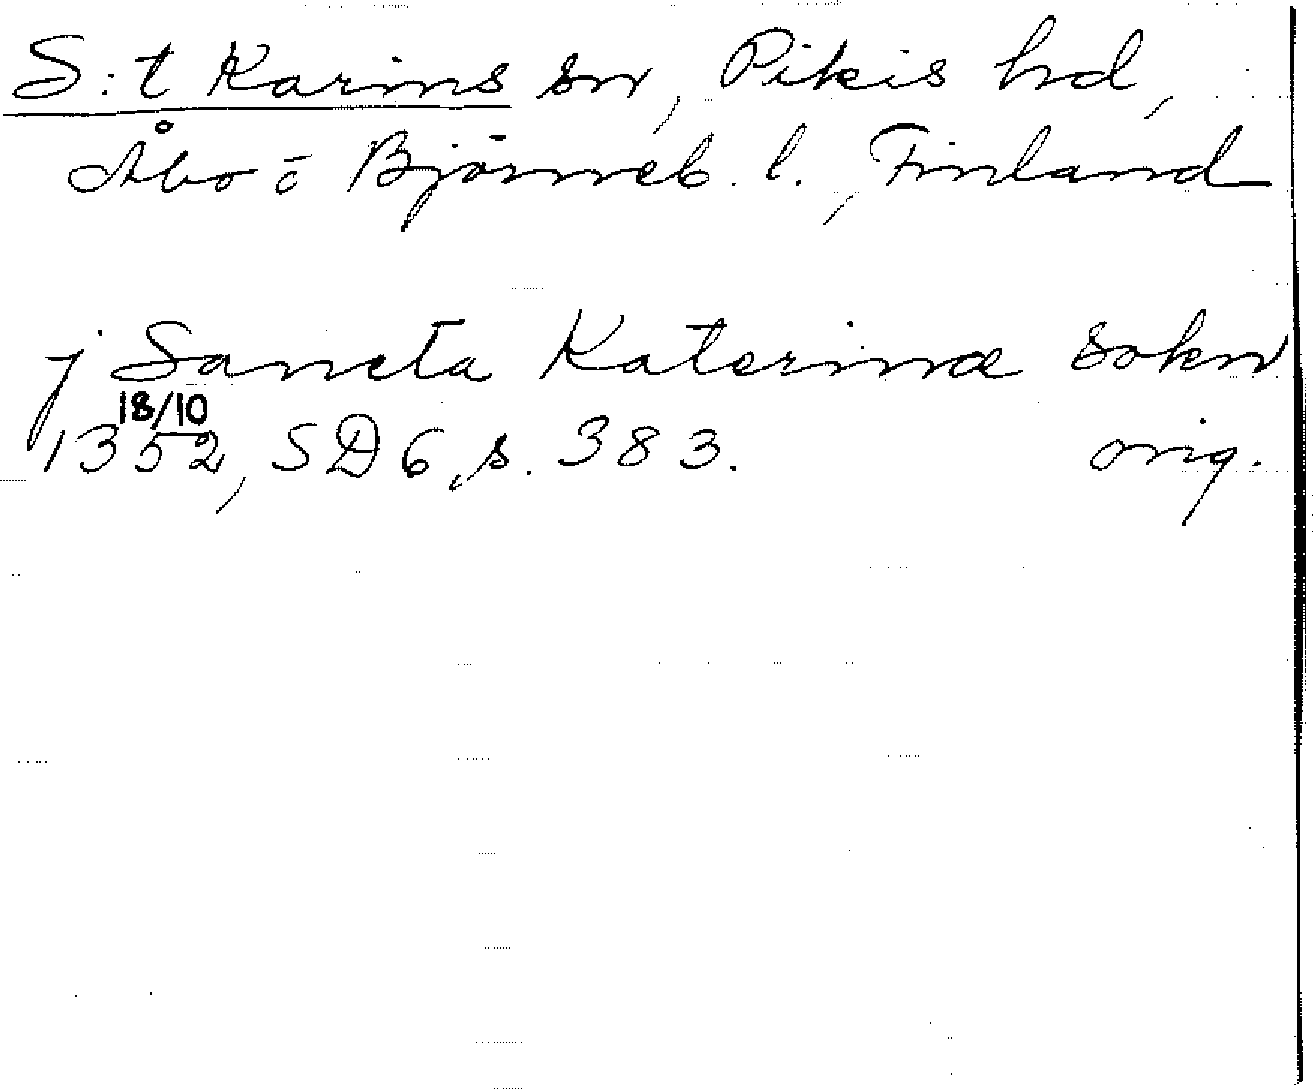 S:t Karins sn, Pikis hd,
Åbo o Björneb. l., Finland
j Sancta Katerinæ sokn
18/10
1352, SD 6, s. 383. orig.